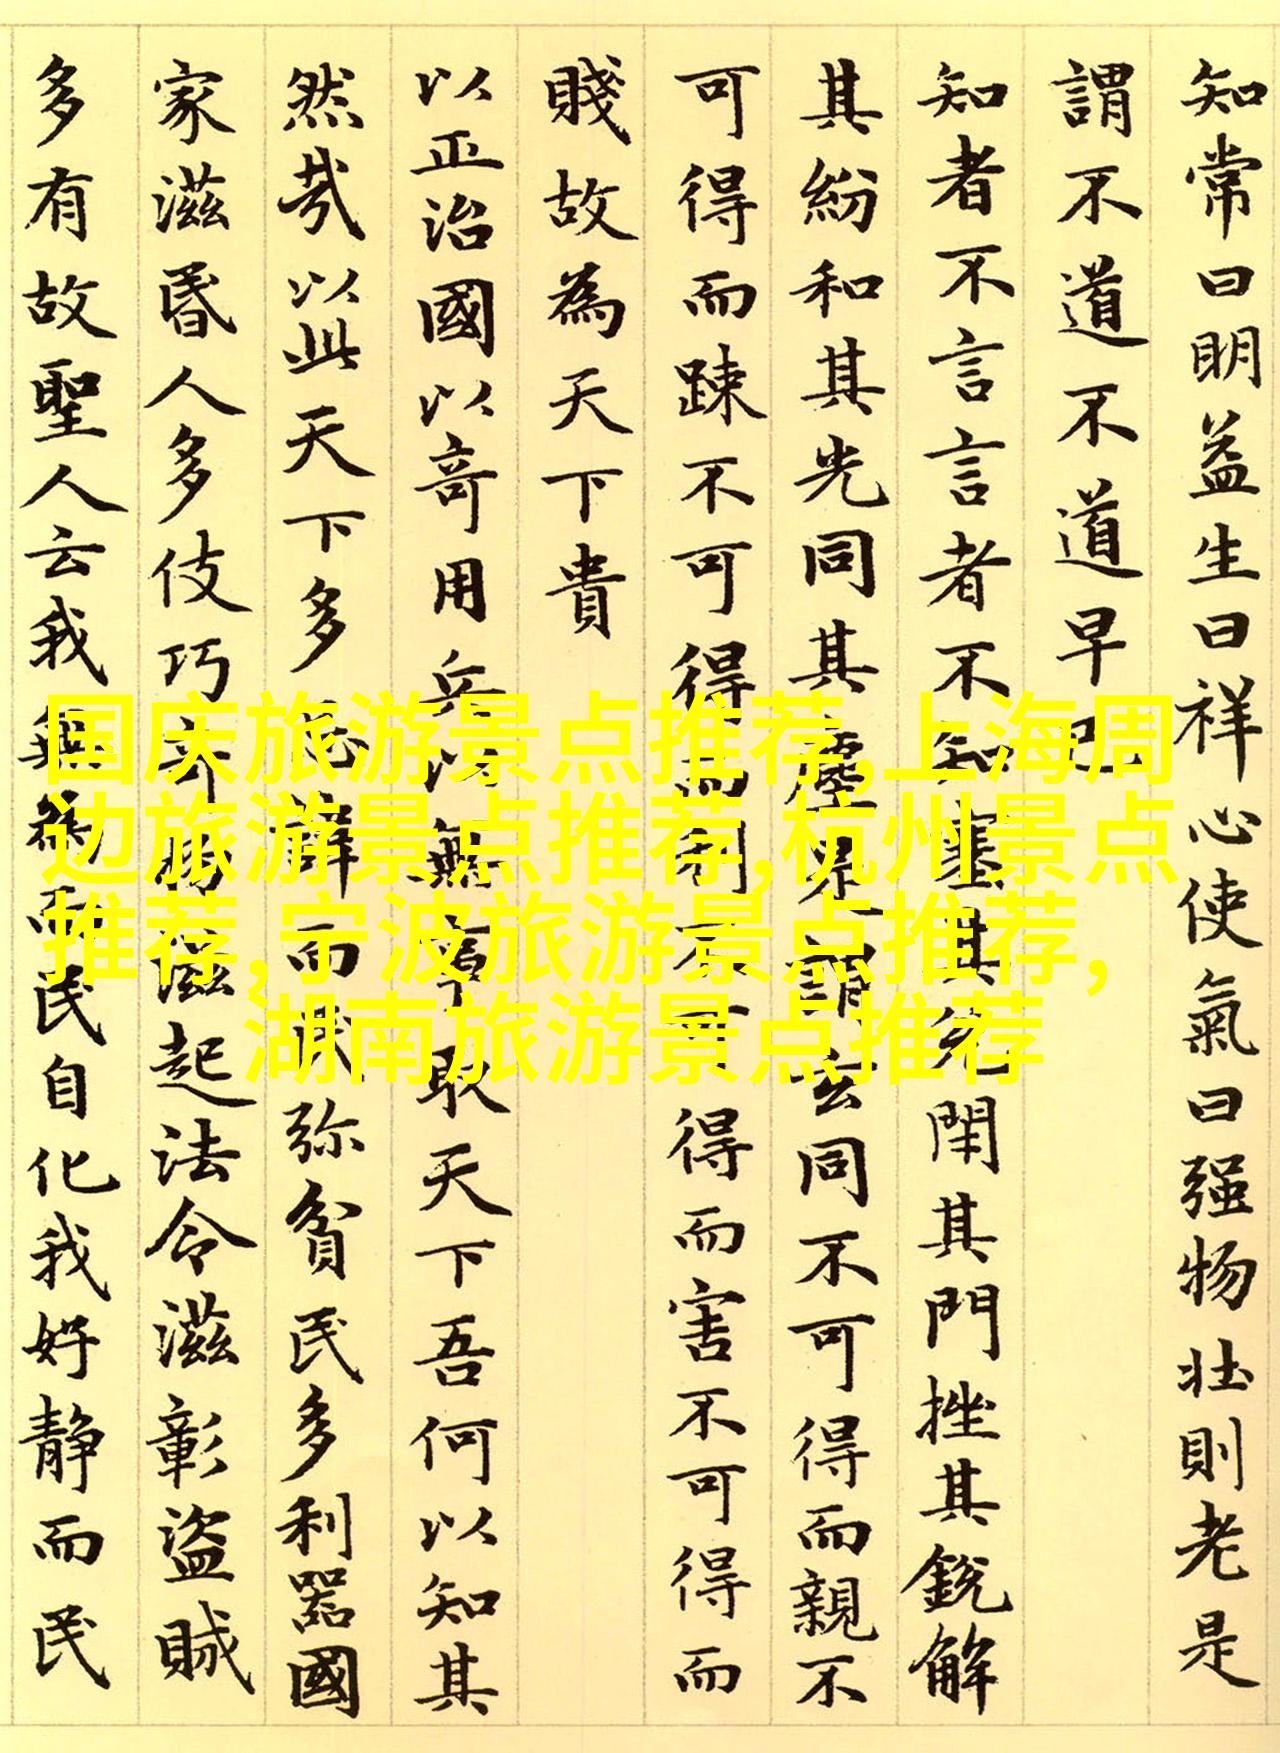 知常曰明益生曰祥心使氣曰强物壯則老是
謂不道不道早已
知者不言言者不知塞其兊閉其門挫其銳解
其紛和其光同其塵是謂玄同不可得而親不
可得而踈不可得而利不可得而害不可得而
賤故為天下貴
以正治國以奇用兵以無事取天下吾何以知其
然㢤以此天下多忌諱而民弥貧民多利器國
家滋昏人多伎巧奇物滋起法令滋彰盗賊
多有故聖人云我無為而民自化我好静而民
国庆旅游景点推荐,上海周
边旅游景点推荐,杭州景点
推荐,宁波旅游景点推荐,
湖南旅游景点推荐